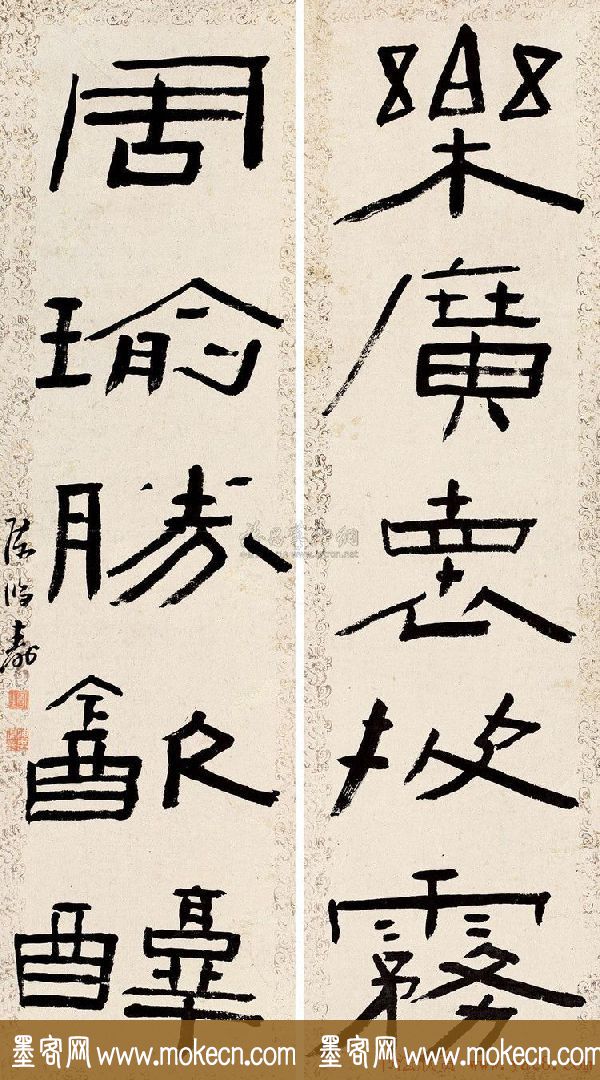 樂廣袁披霧
周瑜勝㱃醇
陳鴻壽
墨客网 www.mokecn.com 墨客网 www.mokecn.com